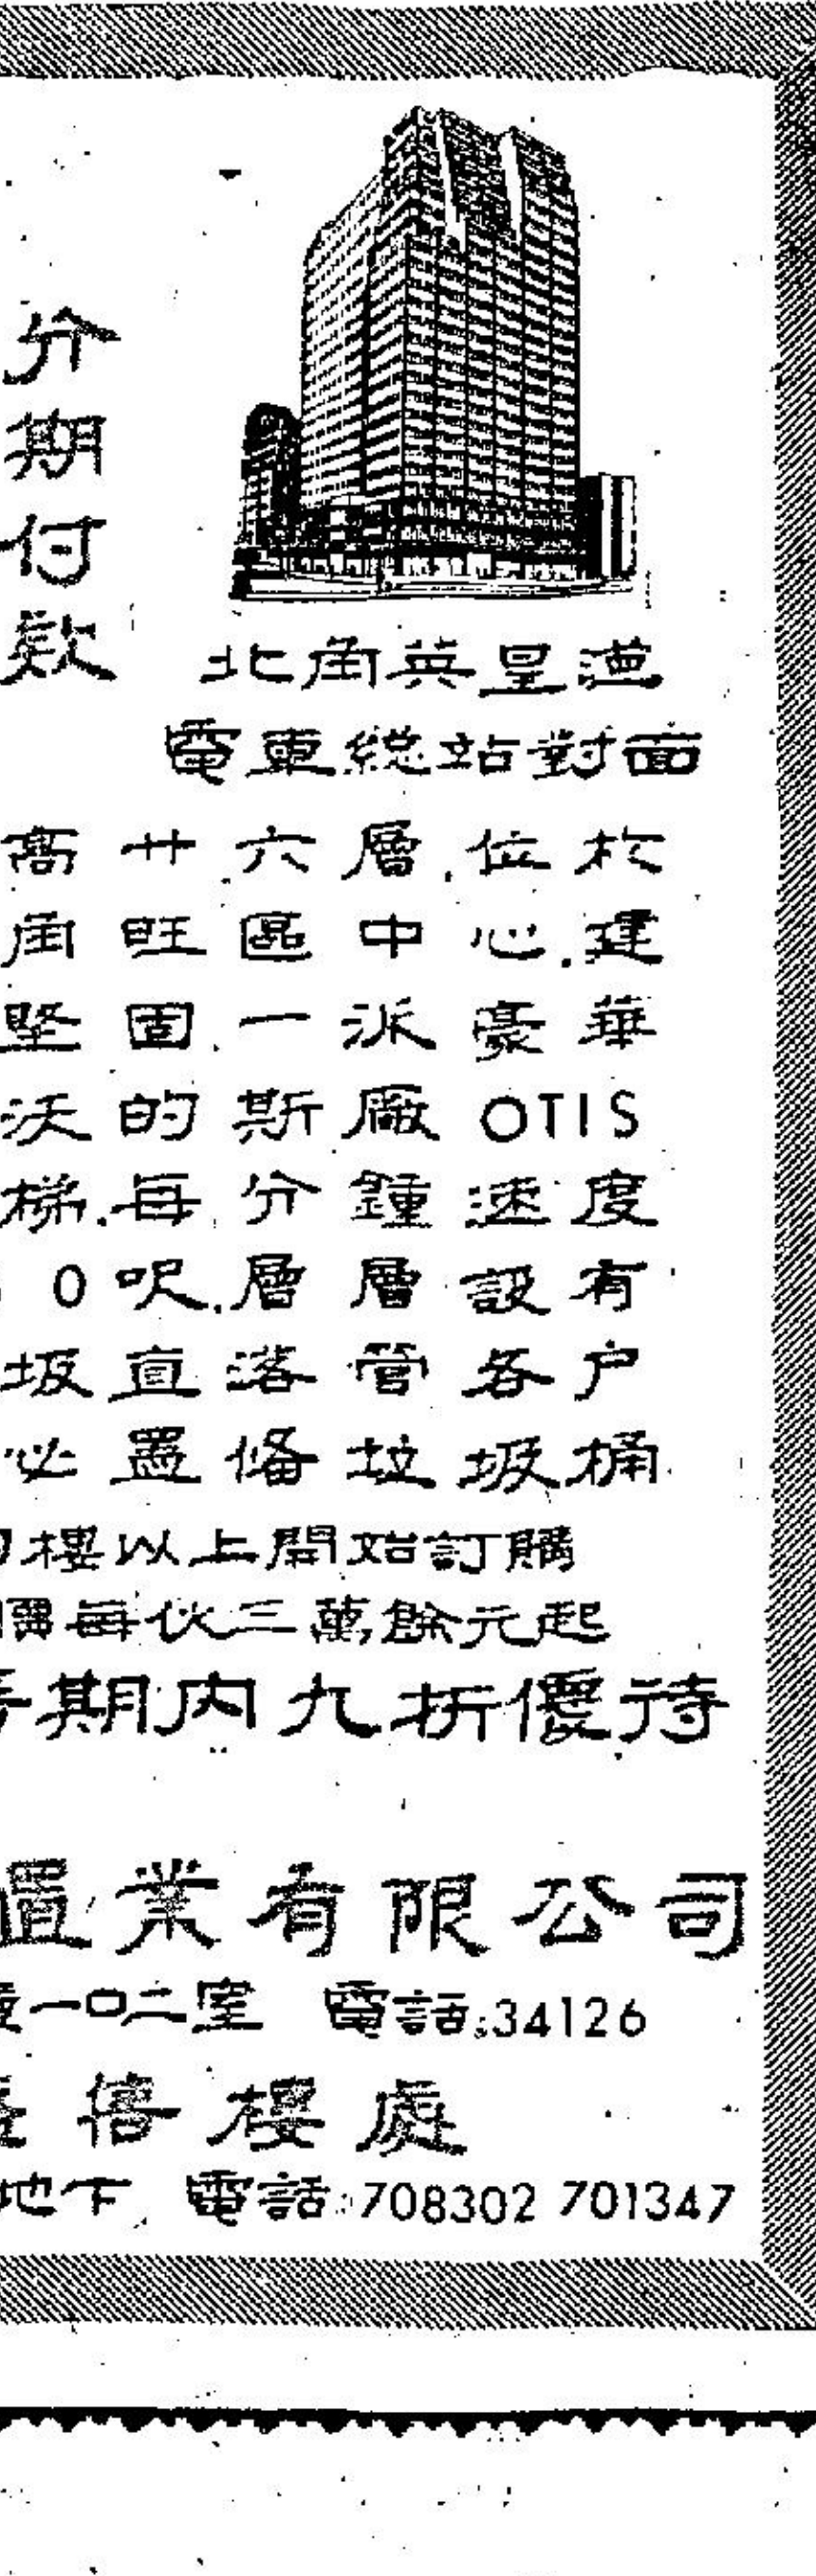 分期付款
北角英皇道
電車總站對面
高廿六層,位於
角旺區中心,建
堅固,一派豪華
沃的斯廠OTIS
梯,每分鐘速度
0呎,層層設有
圾直落管各戶
必置備垃圾桶
樓以上開始訂購
每伙三萬餘元起
期內九折優待
置業有限公司
一〇二室 電話:34126
售樓處
地下 電話:708302 701347